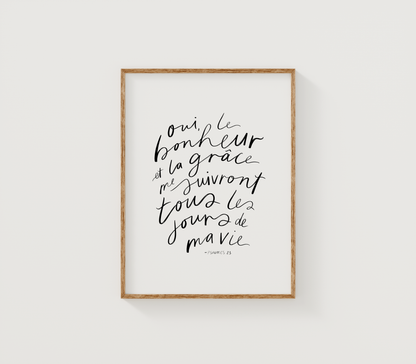 oui, le
bonheur
et la grâce
me suivront
tous les
jours de
ma vie